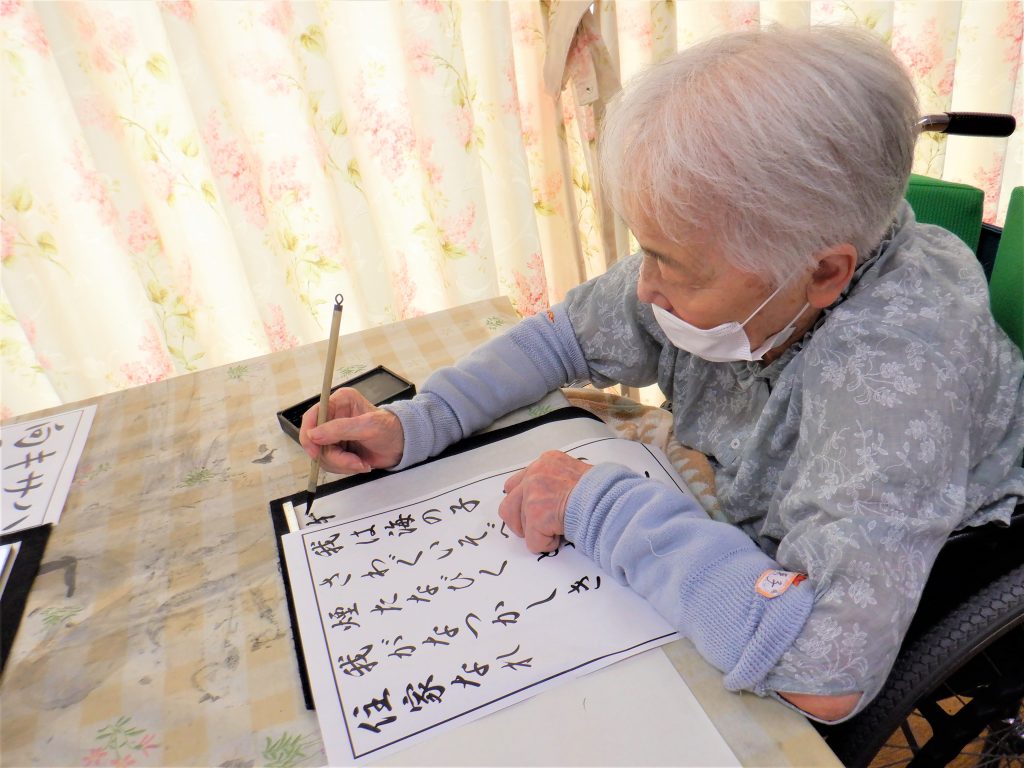 我は海の子
さわぐいそべ
煙たなびく
我がなつかしき
住家なれ